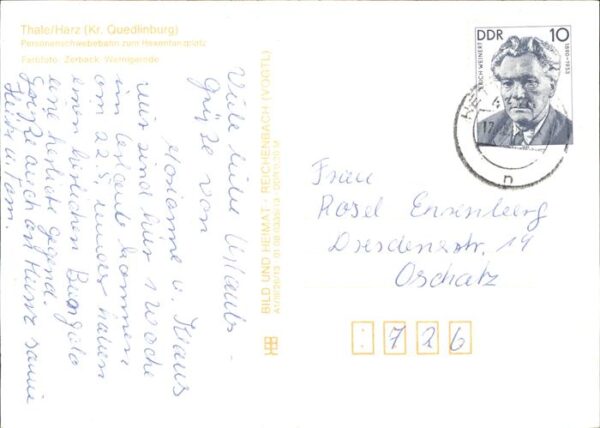 Thale/Harz (Kr. Quedlinburg)
Personenschwebebahn zum Hexentanzplatz
Farbfoto: Zerback, Wernigerode
Viele liebe Urlaubs-
Grüße von
Marianne u. Klaus
wir sind hier 1 Woche
im Urlaub kommen
am 22.5. wieder haben
einen herrlichen Bungalo
eine herrliche Gegend.
Grüße auch an Heinz sowie
u. Fam.
BILD UND HEIMAT · REICHENBACH (VOGTL)
DDR
10
ERICH WEINERT
1890-1953
Frau
Rosel Ensenberg
Dresdenerstr. 19
Oschatz
7 2 6